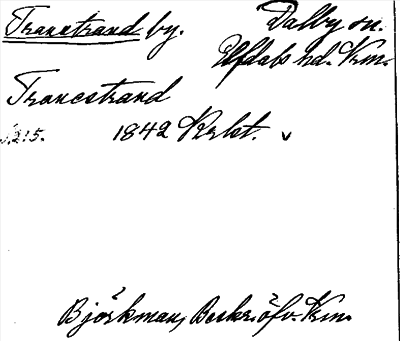 Transtrand by. Dalby sn.
Elfdals hd. Krm.
Tranestrand
S. 215. 1842 Krkt. v
Björkman, Beskrifv. Krm.